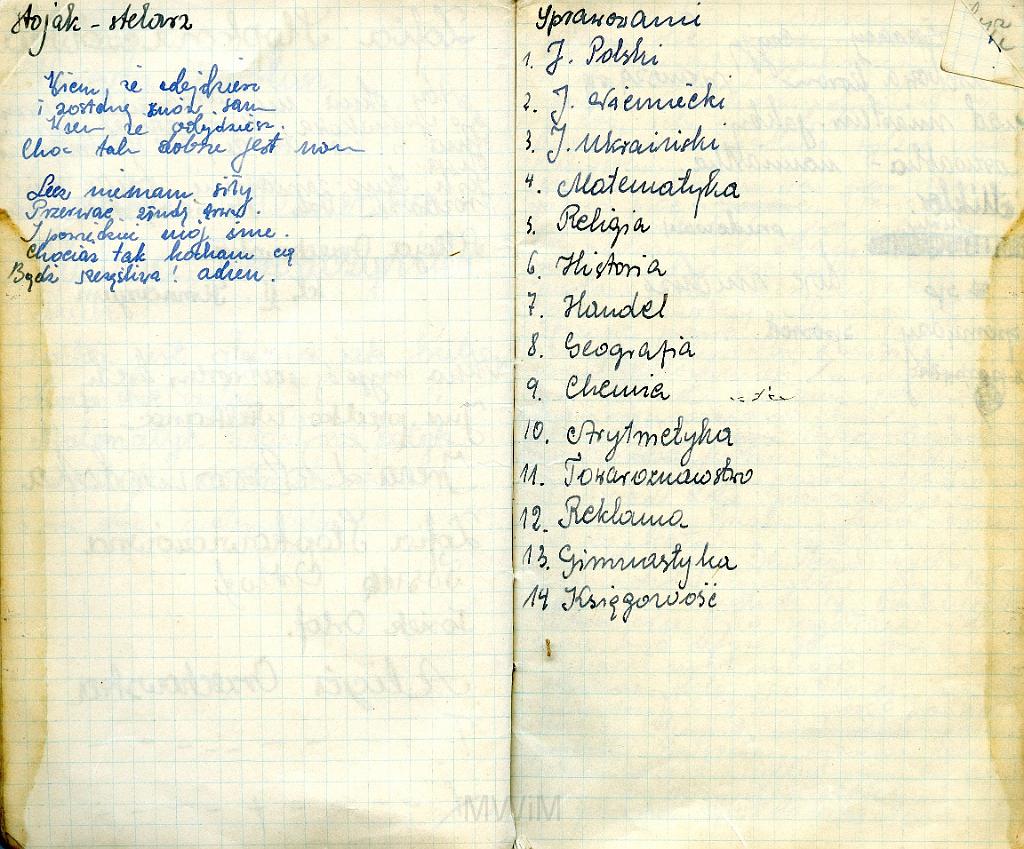 stojak - stelarz
Wiem, że odejdziesz
i zostanę znów sam
Wiem że odejdziesz.
Choc tak dobrze jest nam
Lecz niemam siły
Przerwać
I powiedzieć mój
Chociaż tak kocham cię
Bądź szczęśliwa! adieu.
Sprawozdanii
1. J. Polski
2. J. Niemiecki
3. J. Ukraiński
4. Matematyka
5. Religia
6. Historia
7. Handel
8. Geografia
9. Chemia
10. Arytmetyka
11. Towaroznawstwo
12. Reklama
13. Gimnastyka
14 Księgowość
MiWMi